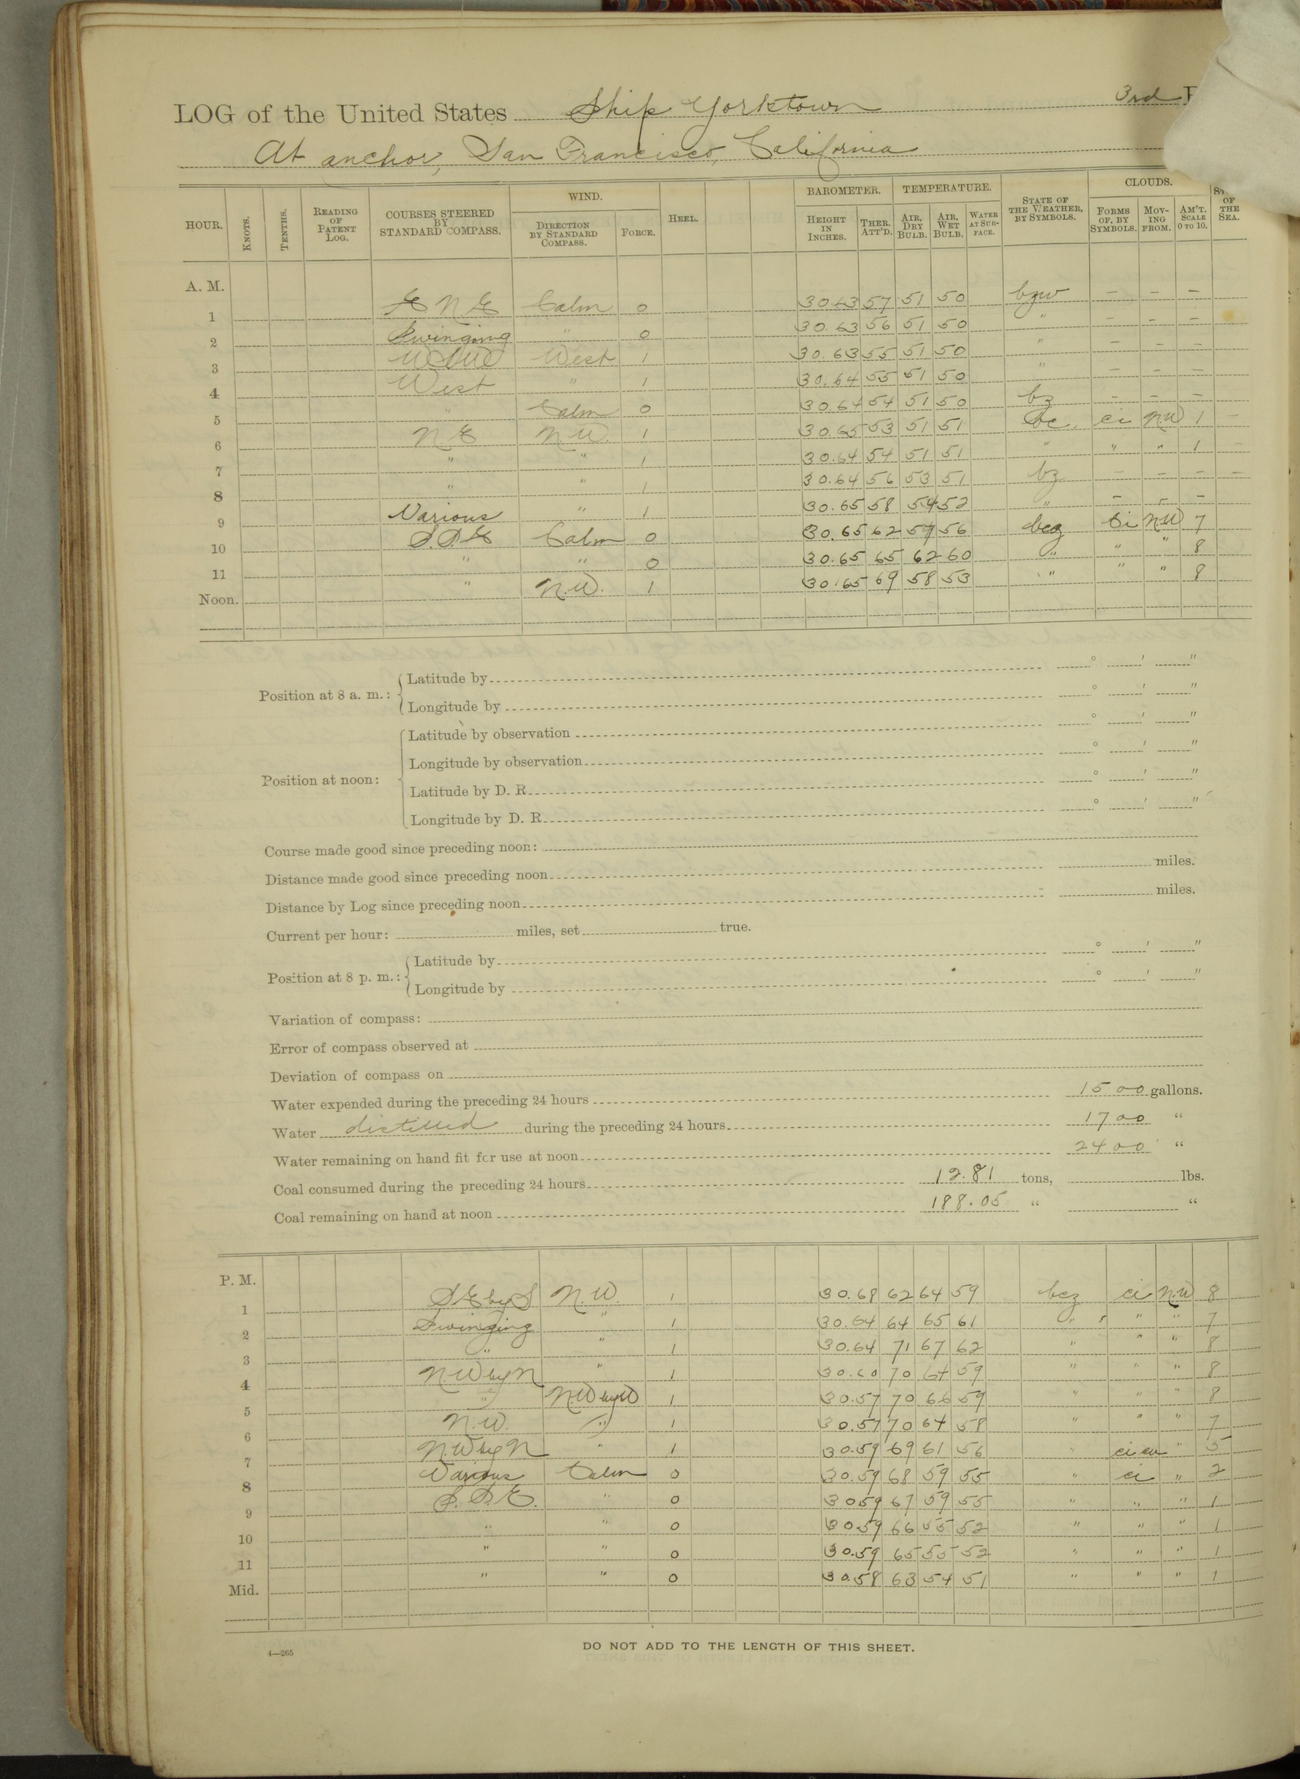 LOG of the United States Ship Yorktown 3rd
At anchor, San Francisco, California
HOUR. KNOTS. TENTHS. READING OF PATENT LOG. COURSES STEERED BY STANDARD COMPASS. WIND. DIRECTION BY STANDARD COMPASS. FORCE. HEEL. BAROMETER. HEIGHT IN INCHES. THER. ATT'D. TEMPERATURE. AIR, DRY BULB. AIR, WET BULB. WATER AT SURFACE. STATE OF THE WEATHER, BY SYMBOLS. CLOUDS. FORMS OF, BY SYMBOLS. MOVING FROM. AM'T. SCALE 0 TO 10. OF THE SEA.
A. M.
1 E N E Calm 0 30.63 57 51 50 bzw – – –
2 Swinging " 0 30.63 56 51 50 " – – –
3 WSW West 1 30.63 55 51 50 " – – –
4 West " 1 30.64 55 51 50 " – – –
5 " Calm 0 30.64 54 51 50 bz – – –
6 N E N W 1 30.65 53 51 51 bc ci NW 1 –
7 " " 1 30.64 54 51 51 " " " 1 –
8 " " 1 30.64 56 53 51 bz – – – –
9 Various " 1 30.65 58 54 52 " – – –
10 S.S.E Calm 0 30.65 62 57 56 bcz Ci NW 7
11 " " 0 30.65 65 62 60 " " " 8
Noon. " N.W. 1 30.65 69 58 53 " " " 8
Position at 8 a. m.: Latitude by ° ' "
Longitude by ° ' "
Position at noon: Latitude by observation ° ' "
Longitude by observation ° ' "
Latitude by D. R. ° ' "
Longitude by D. R. ° ' "
Course made good since preceding noon:
Distance made good since preceding noon miles.
Distance by Log since preceding noon miles.
Current per hour: miles, set true.
Position at 8 p. m.: Latitude by ° ' "
Longitude by ° ' "
Variation of compass:
Error of compass observed at
Deviation of compass on
Water expended during the preceding 24 hours 1500 gallons.
Water distilled during the preceding 24 hours 1700 "
Water remaining on hand fit for use at noon 2400 "
Coal consumed during the preceding 24 hours 12.81 tons, lbs.
Coal remaining on hand at noon 188.05 " "
P. M.
1 SE by S N.W. 1 30.68 62 64 59 bcz ci N.W 8
2 Swinging " 1 30.64 64 65 61 " " " 7
3 " " 1 30.64 71 67 62 " " " 8
4 N.W by N " 1 30.60 70 64 59 " " " 8
5 " N.W by W 1 30.57 70 66 59 " " " 8
6 N.W. " 1 30.57 70 64 58 " " " 7
7 N.W by N " 1 30.59 69 61 56 " ci cu " 5
8 Various Calm 0 30.59 68 59 55 " ci " 2
9 S. S. E. " 0 30 59 67 59 55 " " " 1
10 " " 0 30 59 66 55 52 " " " 1
11 " " 0 30.59 65 55 52 " " " 1
Mid. " " 0 30.58 63 54 51 " " " 1
4—265
DO NOT ADD TO THE LENGTH OF THIS SHEET.